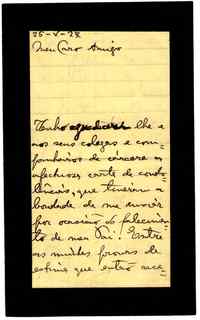 25-V-28
Meu Caro Amigo
Tenho agradecer lhe e
aos seus colegas e com-
panheiros de carcere a
afectuosa carta de condo-
lencias, que tiveram a
bondade de me enviar
por ocasião do falecimen-
to de meu Pai. Entre
as muitas provas de
estima que entre